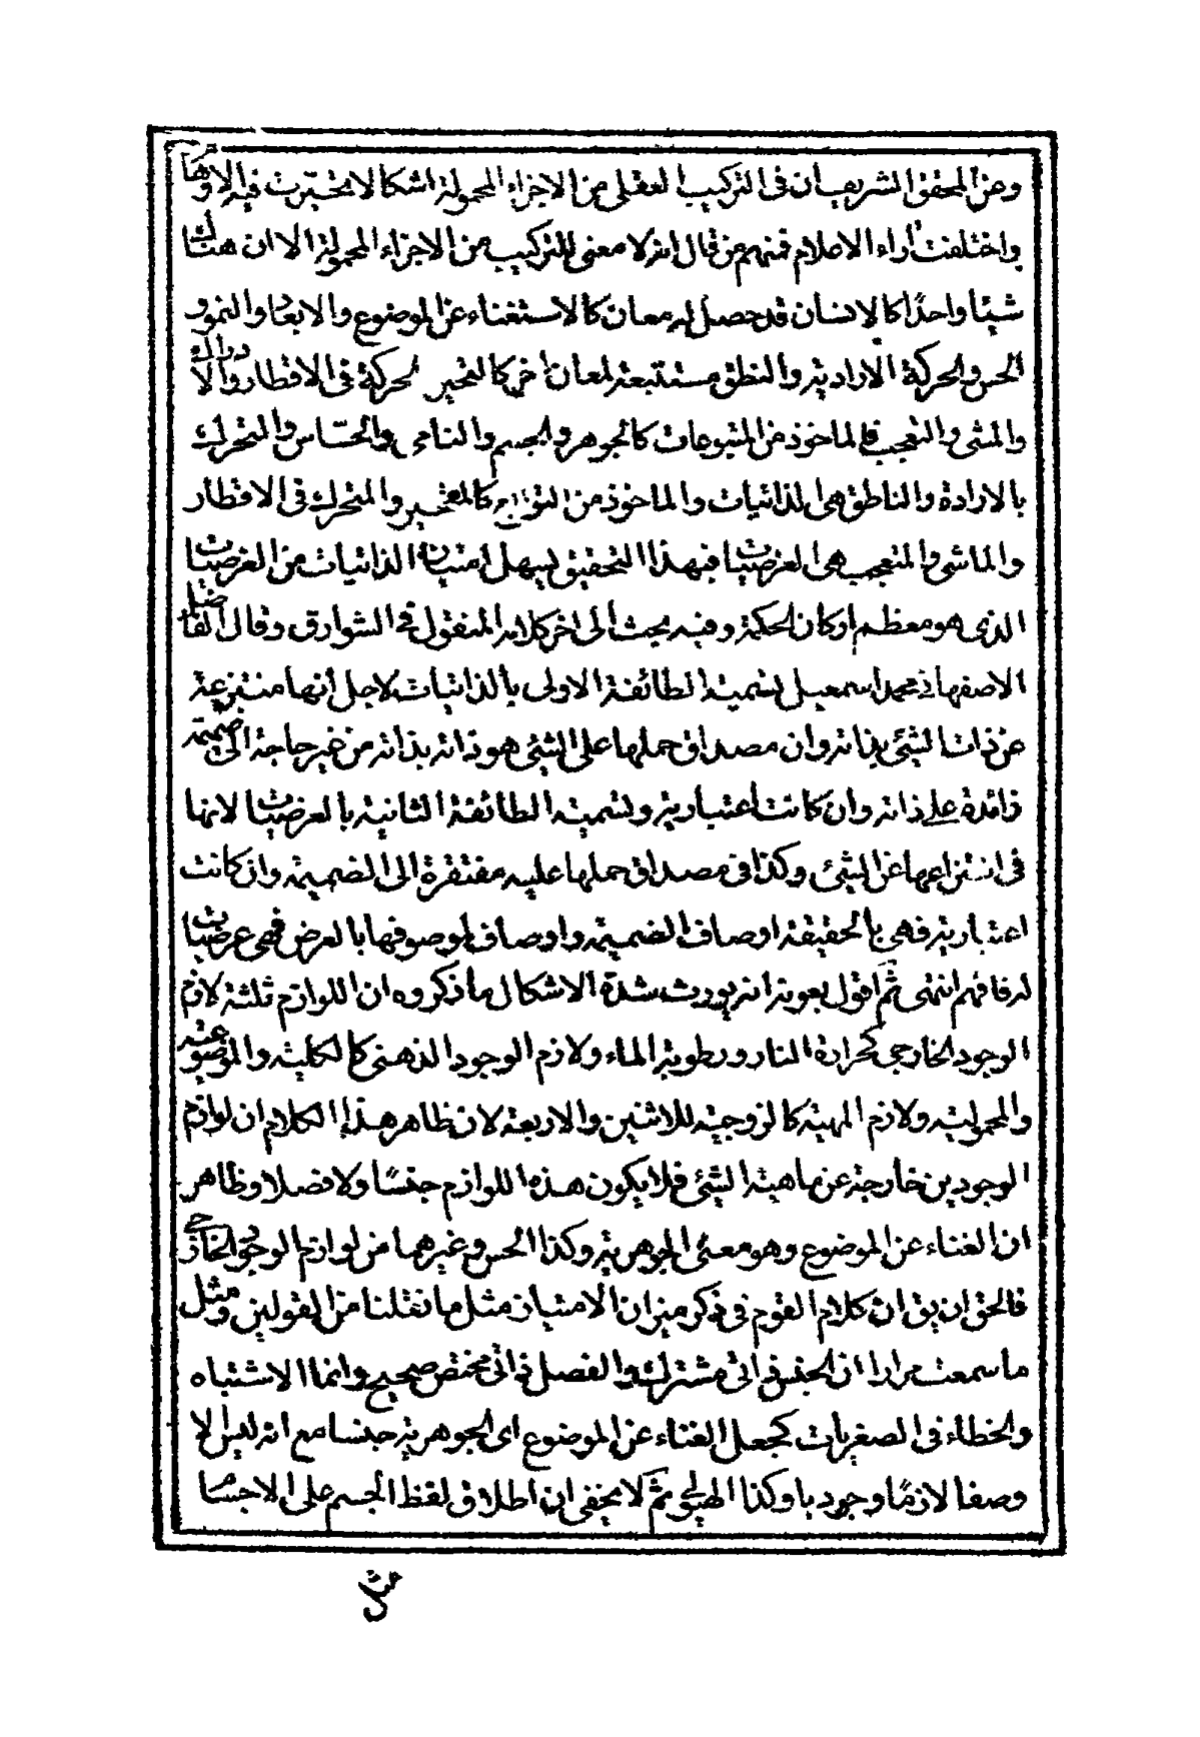 وعن المحقق الشريف ان فى التركيب العقلى من الاجزاء المحمولة اشكالا تحيرت فيه الاوهام
واختلفت آراء الاعلام فمنهم من قال انه لا معنى للتركيب من الاجزاء المحمولة الا ان هناك
شيئا واحدًا كالانسان قد حصل له معان كالاستغناء عن الموضوع والابعاد والنمو و
الحس والحركة الارادية والنطق مستتبعة لمعان اخر كالتحيز الحركة فى الاقطار والادراك
والمشى والتعجب فالماخوذ من المتبوعات كالجوهر والجسم والنامى والحسّاس والمتحرك
بالارادة والناطق هى الذاتيات والماخوذ من التوابع كالمتحيز والمتحرك فى الاقطار
والماشى والمتعجب هى العرضيات فبهذا التحقيق يسهل امتياز الذاتيات من العرضيات
الذى هو معظم اركان الحكمة وفيه بحث الى اخر كلامه المنقول فى الشوارق وقال الفاضل
الاصفهانى محمد اسمعيل تسمية الطائفة الاولى بالذاتيات لاجل انها منتزعة
عن ذات الشئ بذاته وان مصداق حملها على الشئ هو ذاته بذاته من غير حاجة الى ضميمة
زائدة على ذاته وان كانت اعتبارية وتسمية الطائفة الثانية بالعرضيات لانها
فى انتزاعها عن الشئ وكذا فى مصداق حملها عليه مفتقرة الى الضميمة وان كانت
اعتبارية فهى بالحقيقة اوصاف الضميمة واوصاف لموصوفها بالعرض فهى عرضيات
له فافهم انتهى ثم اقول بعونه انه يورث شدة الاشكال ما ذكروه ان اللوازم ثلثة لازم
الوجود الخارجى كحرارة النار ورطوبة الماء ولازم الوجود الذهنى كالكلية والموضوعية
والمحمولية ولازم المهية كالزوجية للاثنين والاربعة لان ظاهر هذا الكلام ان لوازم
الوجودين خارجة عن ماهية الشئ فلا يكون هذه اللوازم جنسًا ولا فصلا وظاهر
ان الغناء عن الموضوع وهو معنى الجوهرية وكذا الحس وغيرهما من لوازم الوجود الخارجى
فالحق ان يق ان كلام القوم فى ذكر ميزان الامتياز مثل ما نقلنا من القولين ومثل
ما سمعت مرارا ان الجنس ذاتى مشترك والفصل ذاتى مختص صحيح وانما الاشتباه
والخطاء فى الصغريات كجعل الغناء عن الموضوع اى الجوهرية جنسا مع انه ليس الا
وصفا لازمًا وجوديا وكذا الهيولى ثم لا يخفى ان اطلاق لفظ الجسم على الاجسام
مثل